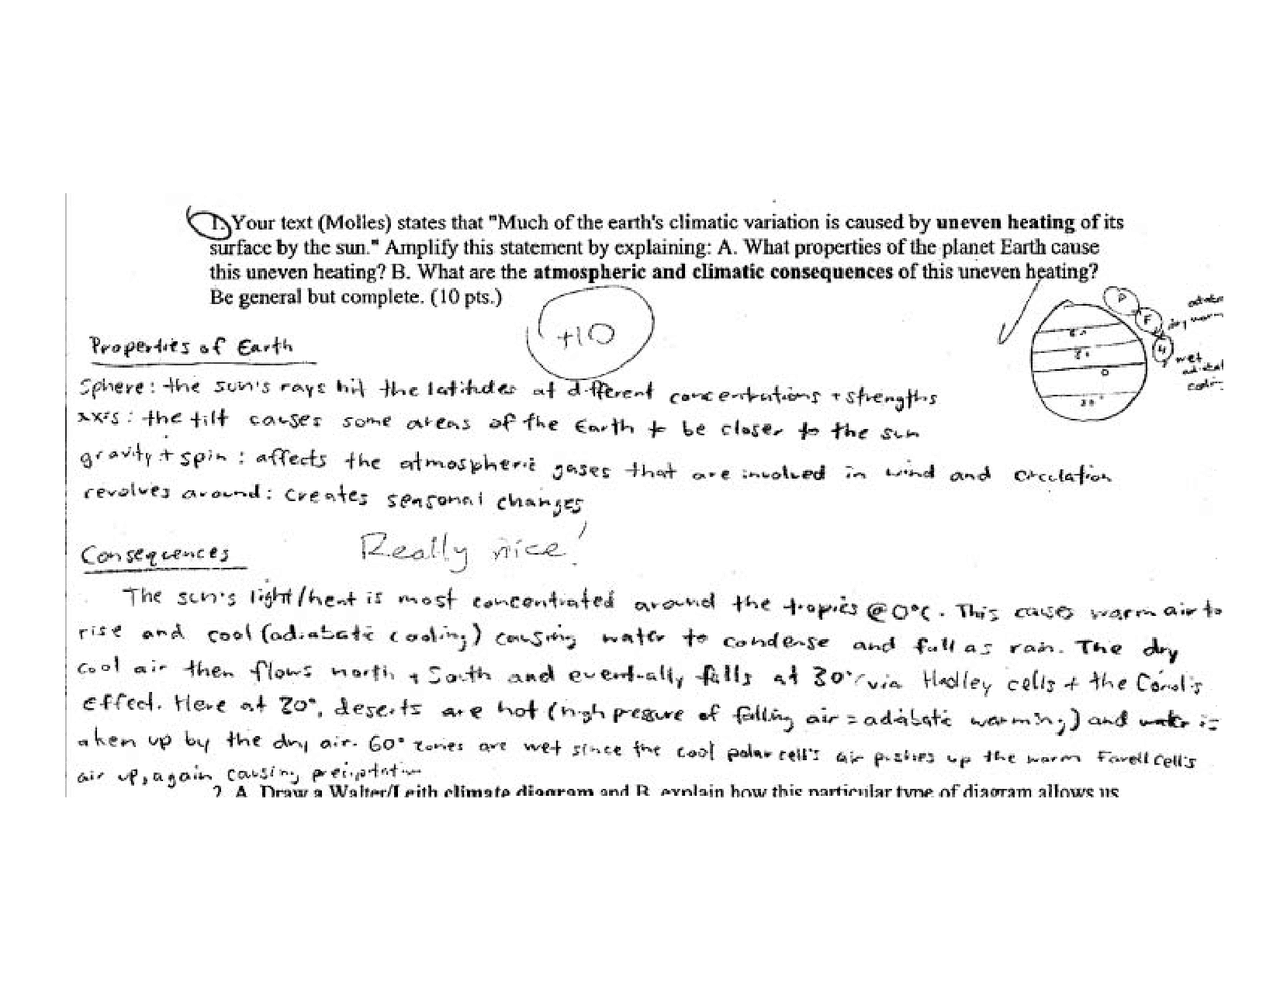 1. Your text (Molles) states that "Much of the earth's climatic variation is caused by uneven heating of its
surface by the sun." Amplify this statement by explaining: A. What properties of the planet Earth cause
this uneven heating? B. What are the atmospheric and climatic consequences of this uneven heating?
Be general but complete. (10 pts.)
+10
P
F
H
dry warm
wet
60
30
0
30°
Properties of Earth
Sphere: the sun's rays hit the latitudes at different concentrations + strengths
axis: the tilt causes some areas of the Earth to be closer to the sun
gravity + spin: affects the atmospheric gases that are involved in wind and circulation
revolves around: creates seasonal changes
Really nice!
Consequences
The sun's light/heat is most concentrated around the tropics @ 0°C. This causes warm air to
rise and cool (adiabatic cooling) causing water to condense and fall as rain. The dry
cool air then flows north + South and eventually falls at 30° via Hadley cells + the Coriolis
Effect. Here at 30°, deserts are hot (high pressure of falling air = adiabatic warming) and water is
aken up by the dry air. 60° zones are wet since the cool polar cell's air pushes up the warm Farell cell's
air up, again causing precipitation
2. A. Draw a Walter/Leith climate diagram and B. explain how this particular type of diagram allows us